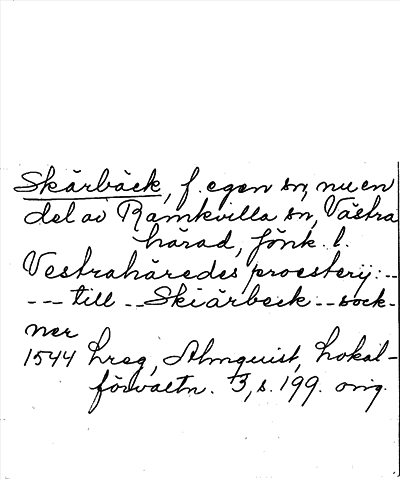 Skärbäck, f. egen sn, nu en
del av Ramkvilla sn, Västra
härad, Jönk. l.
Vestrahäredes proestery: --
--- till -- Skiärbeck -- sock-
ner
1544 Lreg, Almquist, Lokal-
förvaltn. 3, s. 199. orig.